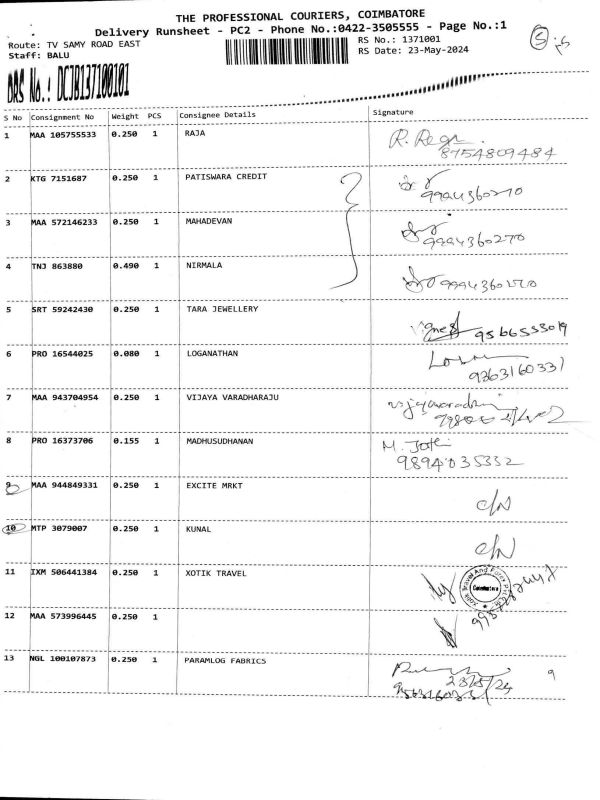 THE PROFESSIONAL COURIERS, COIMBATORE
Delivery Runsheet - PC2 - Phone No.:0422-3505555 - Page No.:1
Route: TV SAMY ROAD EAST RS No.: 1371001
Staff: BALU RS Date: 23-May-2024
DRS No.: DCJB137100101
S No Consignment No Weight PCS Consignee Details Signature
1 MAA 105755533 0.250 1 RAJA
8754809484
2 KTG 7151687 0.250 1 PATISWARA CREDIT
9994360270
3 MAA 572146233 0.250 1 MAHADEVAN
9994360270
4 TNJ 863880 0.490 1 NIRMALA
5 SRT 59242430 0.250 1 TARA JEWELLERY
9566533019
6 PRO 16544025 0.080 1 LOGANATHAN
9363160331
7 MAA 943704954 0.250 1 VIJAYA VARADHARAJU
8 PRO 16373706 0.155 1 MADHUSUDHANAN
9894035332
9 MAA 944849331 0.250 1 EXCITE MRKT
10 MTP 3079007 0.250 1 KUNAL
11 IXM 506441384 0.250 1 XOTIK TRAVEL
Coimbatore
12 MAA 573996445 0.250 1
13 NGL 100107873 0.250 1 PARAMLOG FABRICS
23/5/24
9